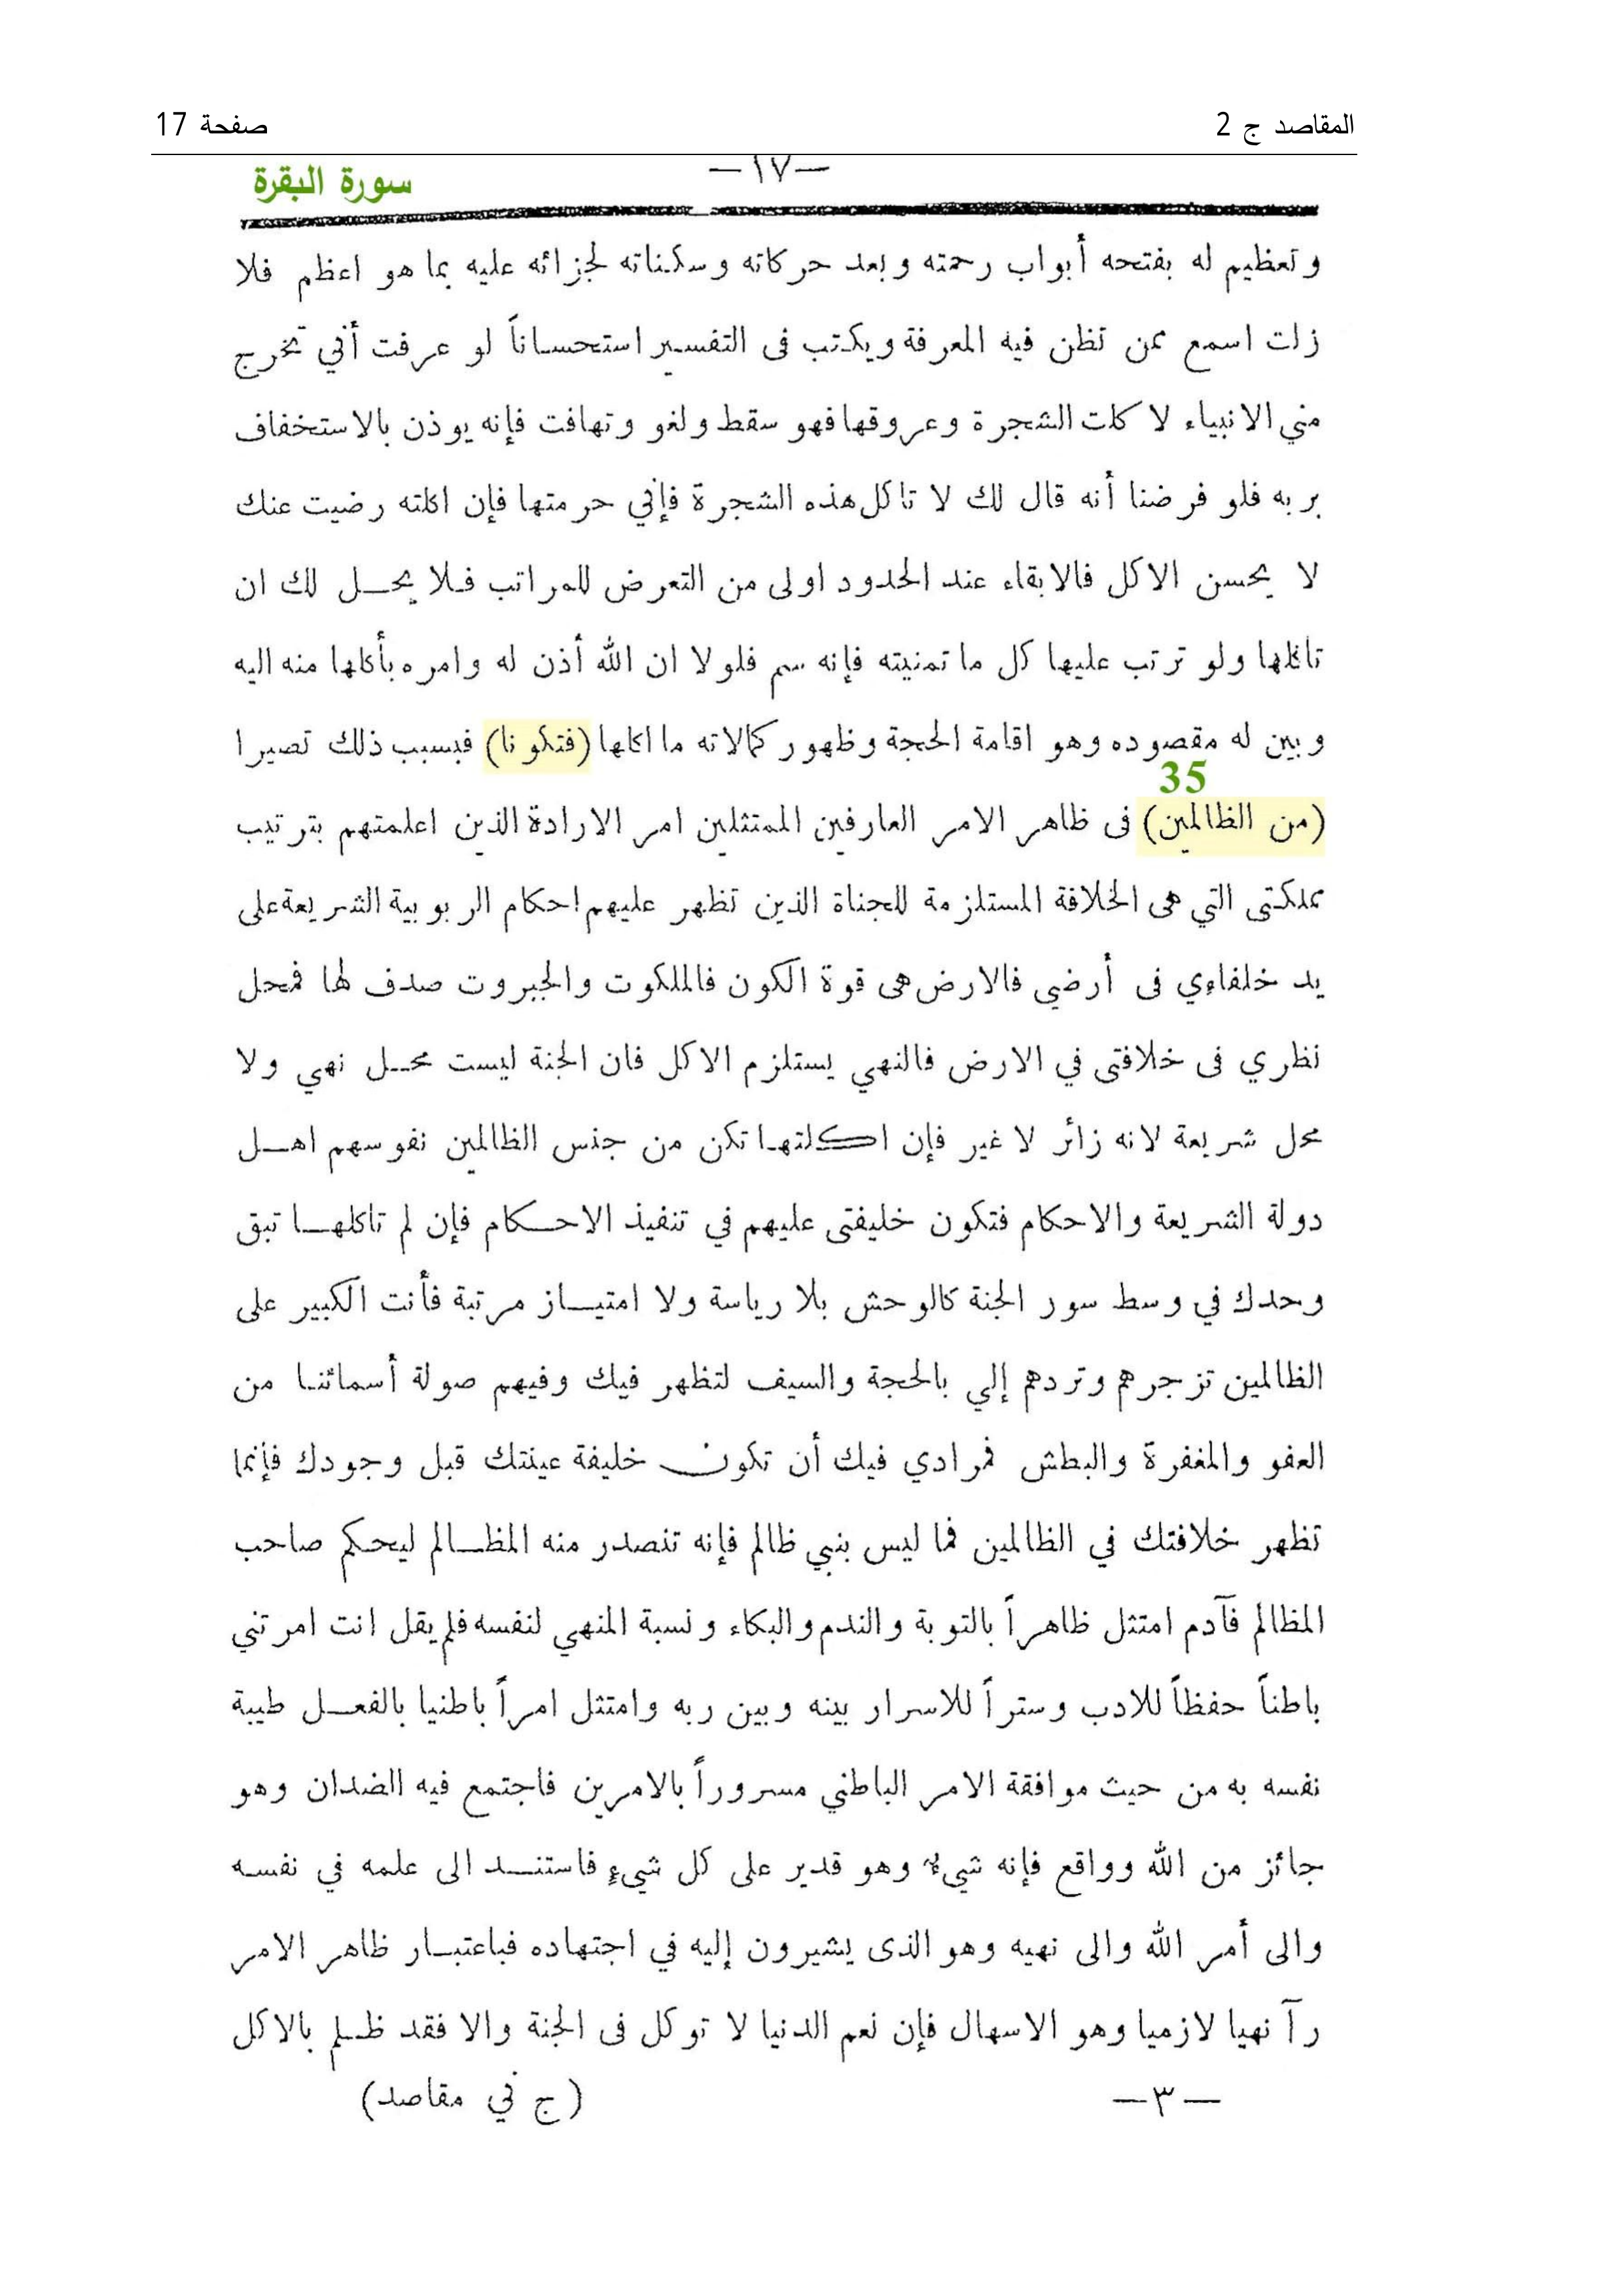 المقاصد ج 2
صفحة 17
—١٧—
سورة البقرة
وتعظيم له بفتحه أبواب رحمته وبعد حركاته وسكناته لجزائه عليه بما هو اعظم فلا
زلت اسمع ممن تظن فيه المعرفة ويكتب فى التفسير استحساناً لو عرفت أني تخرج
مني الانبياء لا كلت الشجرة وعروقها فهو سقط ولغو وتهافت فإنه يوذن بالاستخفاف
بربه فلو فرضنا أنه قال لك لا تاكل هذه الشجرة فإني حرمتها فإن اكلته رضيت عنك
لا يحسن الاكل فالابقاء عند الحدود اولى من التعرض للمراتب فلا يحل لك ان
تاكلها ولو ترتب عليها كل ما تمنيته فإنه سم فلولا ان الله أذن له وامره بأكلها منه اليه
وبين له مقصوده وهو اقامة الحجة وظهور كمالاته ما اكلها (فتكونا) فبسبب ذلك تصيرا
35
(من الظالمين) فى ظاهر الامر العارفين الممتثلين امر الارادة الذين اعلمتهم بترتيب
مملكتى التي هى الخلافة المستلزمة للجناة الذين تظهر عليهم احكام الربوبية الشريعة على
يد خلفاءي فى أرضي فالارض هى قوة الكون فالملكوت والجبروت صدف لها فمحل
نظري فى خلافتى في الارض فالنهي يستلزم الاكل فان الجنة ليست محل نهي ولا
محل شريعة لانه زائر لا غير فإن اكلتها تكن من جنس الظالمين نفوسهم اهل
دولة الشريعة والاحكام فتكون خليفتى عليهم في تنفيذ الاحكام فإن لم تاكلها تبق
وحدك في وسط سور الجنة كالوحش بلا رياسة ولا امتياز مرتبة فأنت الكبير على
الظالمين تزجرهم وتردهم إلي بالحجة والسيف لتظهر فيك وفيهم صولة أسمائنا من
العفو والمغفرة والبطش فمرادي فيك أن تكون خليفة عينتك قبل وجودك فإنما
تظهر خلافتك في الظالمين فما ليس بنبي ظالم فإنه تنصدر منه المظالم ليحكم صاحب
المظالم فآدم امتثل ظاهراً بالتوبة والندم والبكاء ونسبة المنهي لنفسه فلم يقل انت امرتني
باطناً حفظاً للادب وستراً للاسرار بينه وبين ربه وامتثل امراً باطنيا بالفعل طيبة
نفسه به من حيث موافقة الامر الباطني مسروراً بالامرين فاجتمع فيه الضدان وهو
جائز من الله وواقع فإنه شيءٌ وهو قدير على كل شيءٍ فاستند الى علمه في نفسه
والى أمر الله والى نهيه وهو الذى يشيرون إليه في اجتهاده فباعتبار ظاهر الامر
رآ نهيا لازميا وهو الاسهال فإن نعم الدنيا لا توكل فى الجنة والا فقد ظلم بالاكل
—٣—
(ج ني مقاصد)